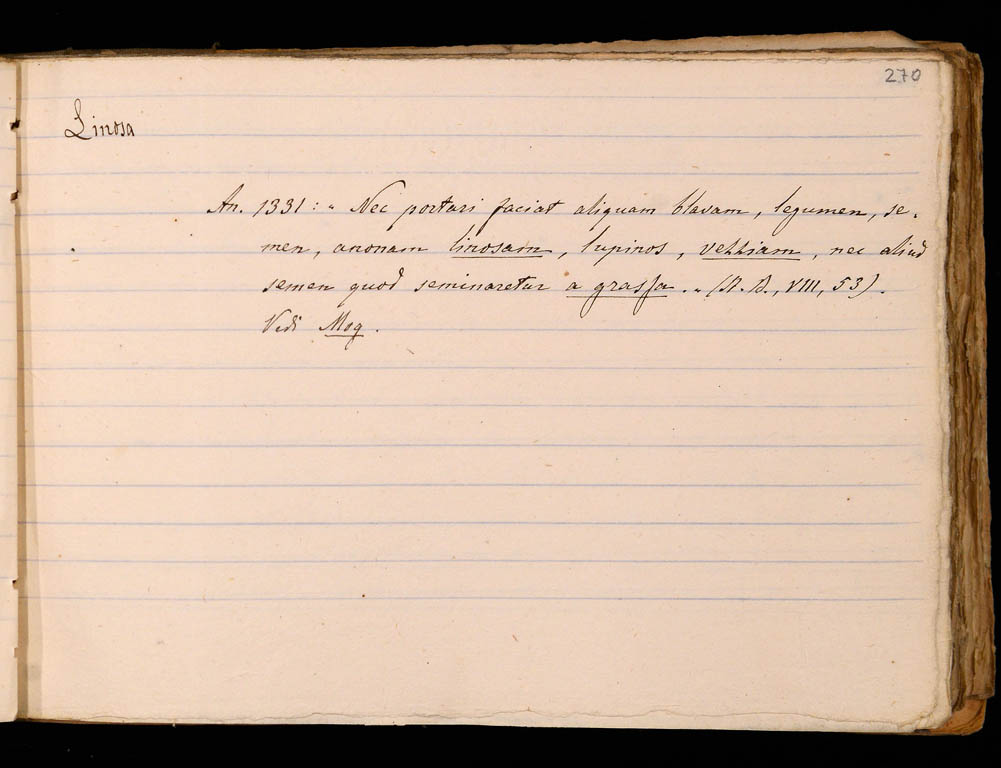 270
Linosa
An. 1331: „ Nec portari faciat aliquam blavam, legumen, se-
men, anonam linosam, lupinos, vezziam, nec aliud
semen quod seminaretur a grassa. „ (R. B., VIII, 53).
Vedi Mog.